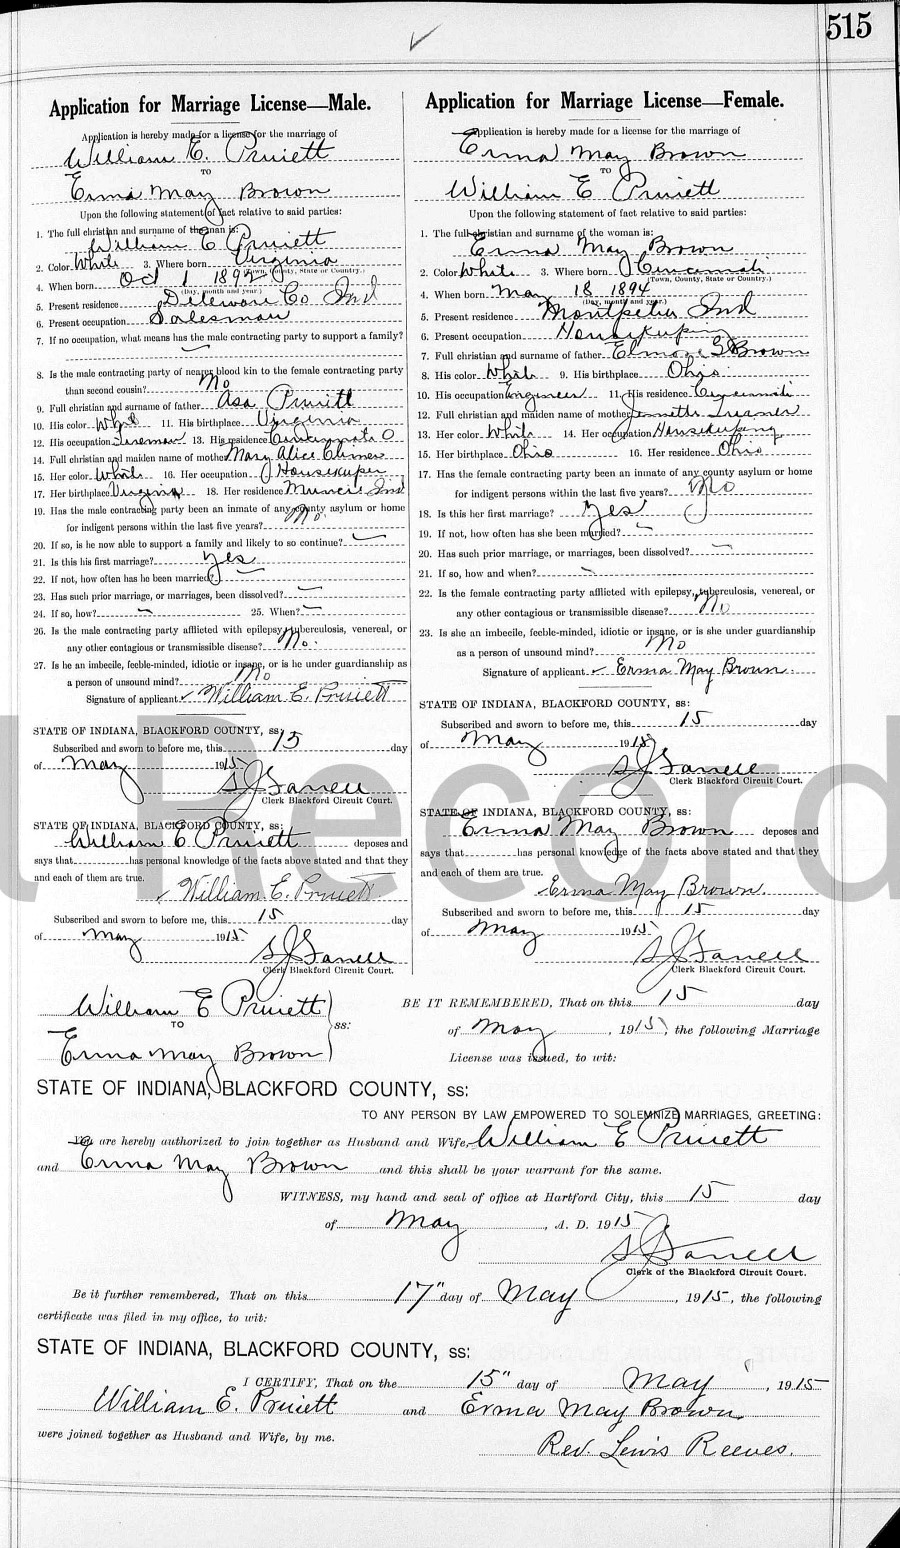 515
Application for Marriage License—Male.
Application is hereby made for a license for the marriage of
William E. Pruiett
TO
Erma May Brown
Upon the following statement of fact relative to said parties:
1. The full christian and surname of the man is:
William E Pruiett
2. Color White 3. Where born Virginia
(Town, County, State or Country.)
4. When born Oct 1 1892
(Day, month and year.)
5. Present residence Deleware Co Ind
6. Present occupation Salesman
7. If no occupation, what means has the male contracting party to support a family?
8. Is the male contracting party of nearer blood kin to the female contracting party
than second cousin? No
9. Full christian and surname of father Asa Pruiett
10. His color White 11. His birthplace Virginia
12. His occupation Fireman 13. His residence Cincinnati O
14. Full christian and maiden name of mother Mary Alice
15. Her color White 16. Her occupation Housekeeper
17. Her birthplace Virginia 18. Her residence Muncie Ind
19. Has the male contracting party been an inmate of any county asylum or home
for indigent persons within the last five years? No
20. If so, is he now able to support a family and likely to so continue?
21. Is this his first marriage? Yes
22. If not, how often has he been married?
23. Has such prior marriage, or marriages, been dissolved?
24. If so, how? 25. When?
26. Is the male contracting party afflicted with epilepsy, tuberculosis, venereal, or
any other contagious or transmissible disease? No.
27. Is he an imbecile, feeble-minded, idiotic or insane, or is he under guardianship as
a person of unsound mind? No
Signature of applicant William E. Pruiett
STATE OF INDIANA, BLACKFORD COUNTY, ss:
Subscribed and sworn to before me, this 15 day
of May 1915
S J Farrell
Clerk Blackford Circuit Court.
STATE OF INDIANA, BLACKFORD COUNTY, ss:
William E Pruiett deposes and
says that has personal knowledge of the facts above stated and that they
and each of them are true.
William E. Pruiett
Subscribed and sworn to before me, this 15 day
of May 1915
S J Farrell
Clerk Blackford Circuit Court.
Application for Marriage License—Female.
Application is hereby made for a license for the marriage of
Erma May Brown
TO
William E Pruiett
Upon the following statement of fact relative to said parties:
1. The full christian and surname of the woman is:
Erma May Brown
2. Color White 3. Where born Cincinnati
(Town, County, State or Country.)
4. When born May 18 1894
(Day, month and year.)
5. Present residence Montpelier Ind
6. Present occupation Housekeeping
7. Full christian and surname of father Brown
8. His color White 9. His birthplace Ohio
10. His occupation Engineer 11. His residence Cincinnati
12. Full christian and maiden name of mother
13. Her color White 14. Her occupation Housekeeping
15. Her birthplace Ohio 16. Her residence Ohio
17. Has the female contracting party been an inmate of any county asylum or home
for indigent persons within the last five years? No
18. Is this her first marriage? Yes
19. If not, how often has she been married?
20. Has such prior marriage, or marriages, been dissolved?
21. If so, how and when?
22. Is the female contracting party afflicted with epilepsy, tuberculosis, venereal, or
any other contagious or transmissible disease? No
23. Is she an imbecile, feeble-minded, idiotic or insane, or is she under guardianship
as a person of unsound mind? No
Signature of applicant Erma May Brown.
STATE OF INDIANA, BLACKFORD COUNTY, ss:
Subscribed and sworn to before me, this 15 day
of May 1915
S J Farrell
Clerk Blackford Circuit Court.
STATE OF INDIANA, BLACKFORD COUNTY, ss:
Erma May Brown deposes and
says that has personal knowledge of the facts above stated and that they
and each of them are true.
Erma May Brown.
Subscribed and sworn to before me, this 15 day
of May 1915
S J Farrell
Clerk Blackford Circuit Court.
l Record
William E Pruiett
TO
Erma May Brown
ss:
BE IT REMEMBERED, That on this 15 day
of May, 1915, the following Marriage
License was issued, to wit:
STATE OF INDIANA, BLACKFORD COUNTY, ss:
TO ANY PERSON BY LAW EMPOWERED TO SOLEMNIZE MARRIAGES, GREETING:
You are hereby authorized to join together as Husband and Wife, William E Pruiett
and Erma May Brown and this shall be your warrant for the same.
WITNESS, my hand and seal of office at Hartford City, this 15 day
of May, A. D. 1915
S J Farrell
Clerk of the Blackford Circuit Court.
Be it further remembered, That on this 17" day of May, 1915, the following
certificate was filed in my office, to wit:
STATE OF INDIANA, BLACKFORD COUNTY, ss:
I CERTIFY, That on the 15" day of May, 1915
William E. Pruiett and Erma May Brown
were joined together as Husband and Wife, by me.
Rev. Lewis Reeves.